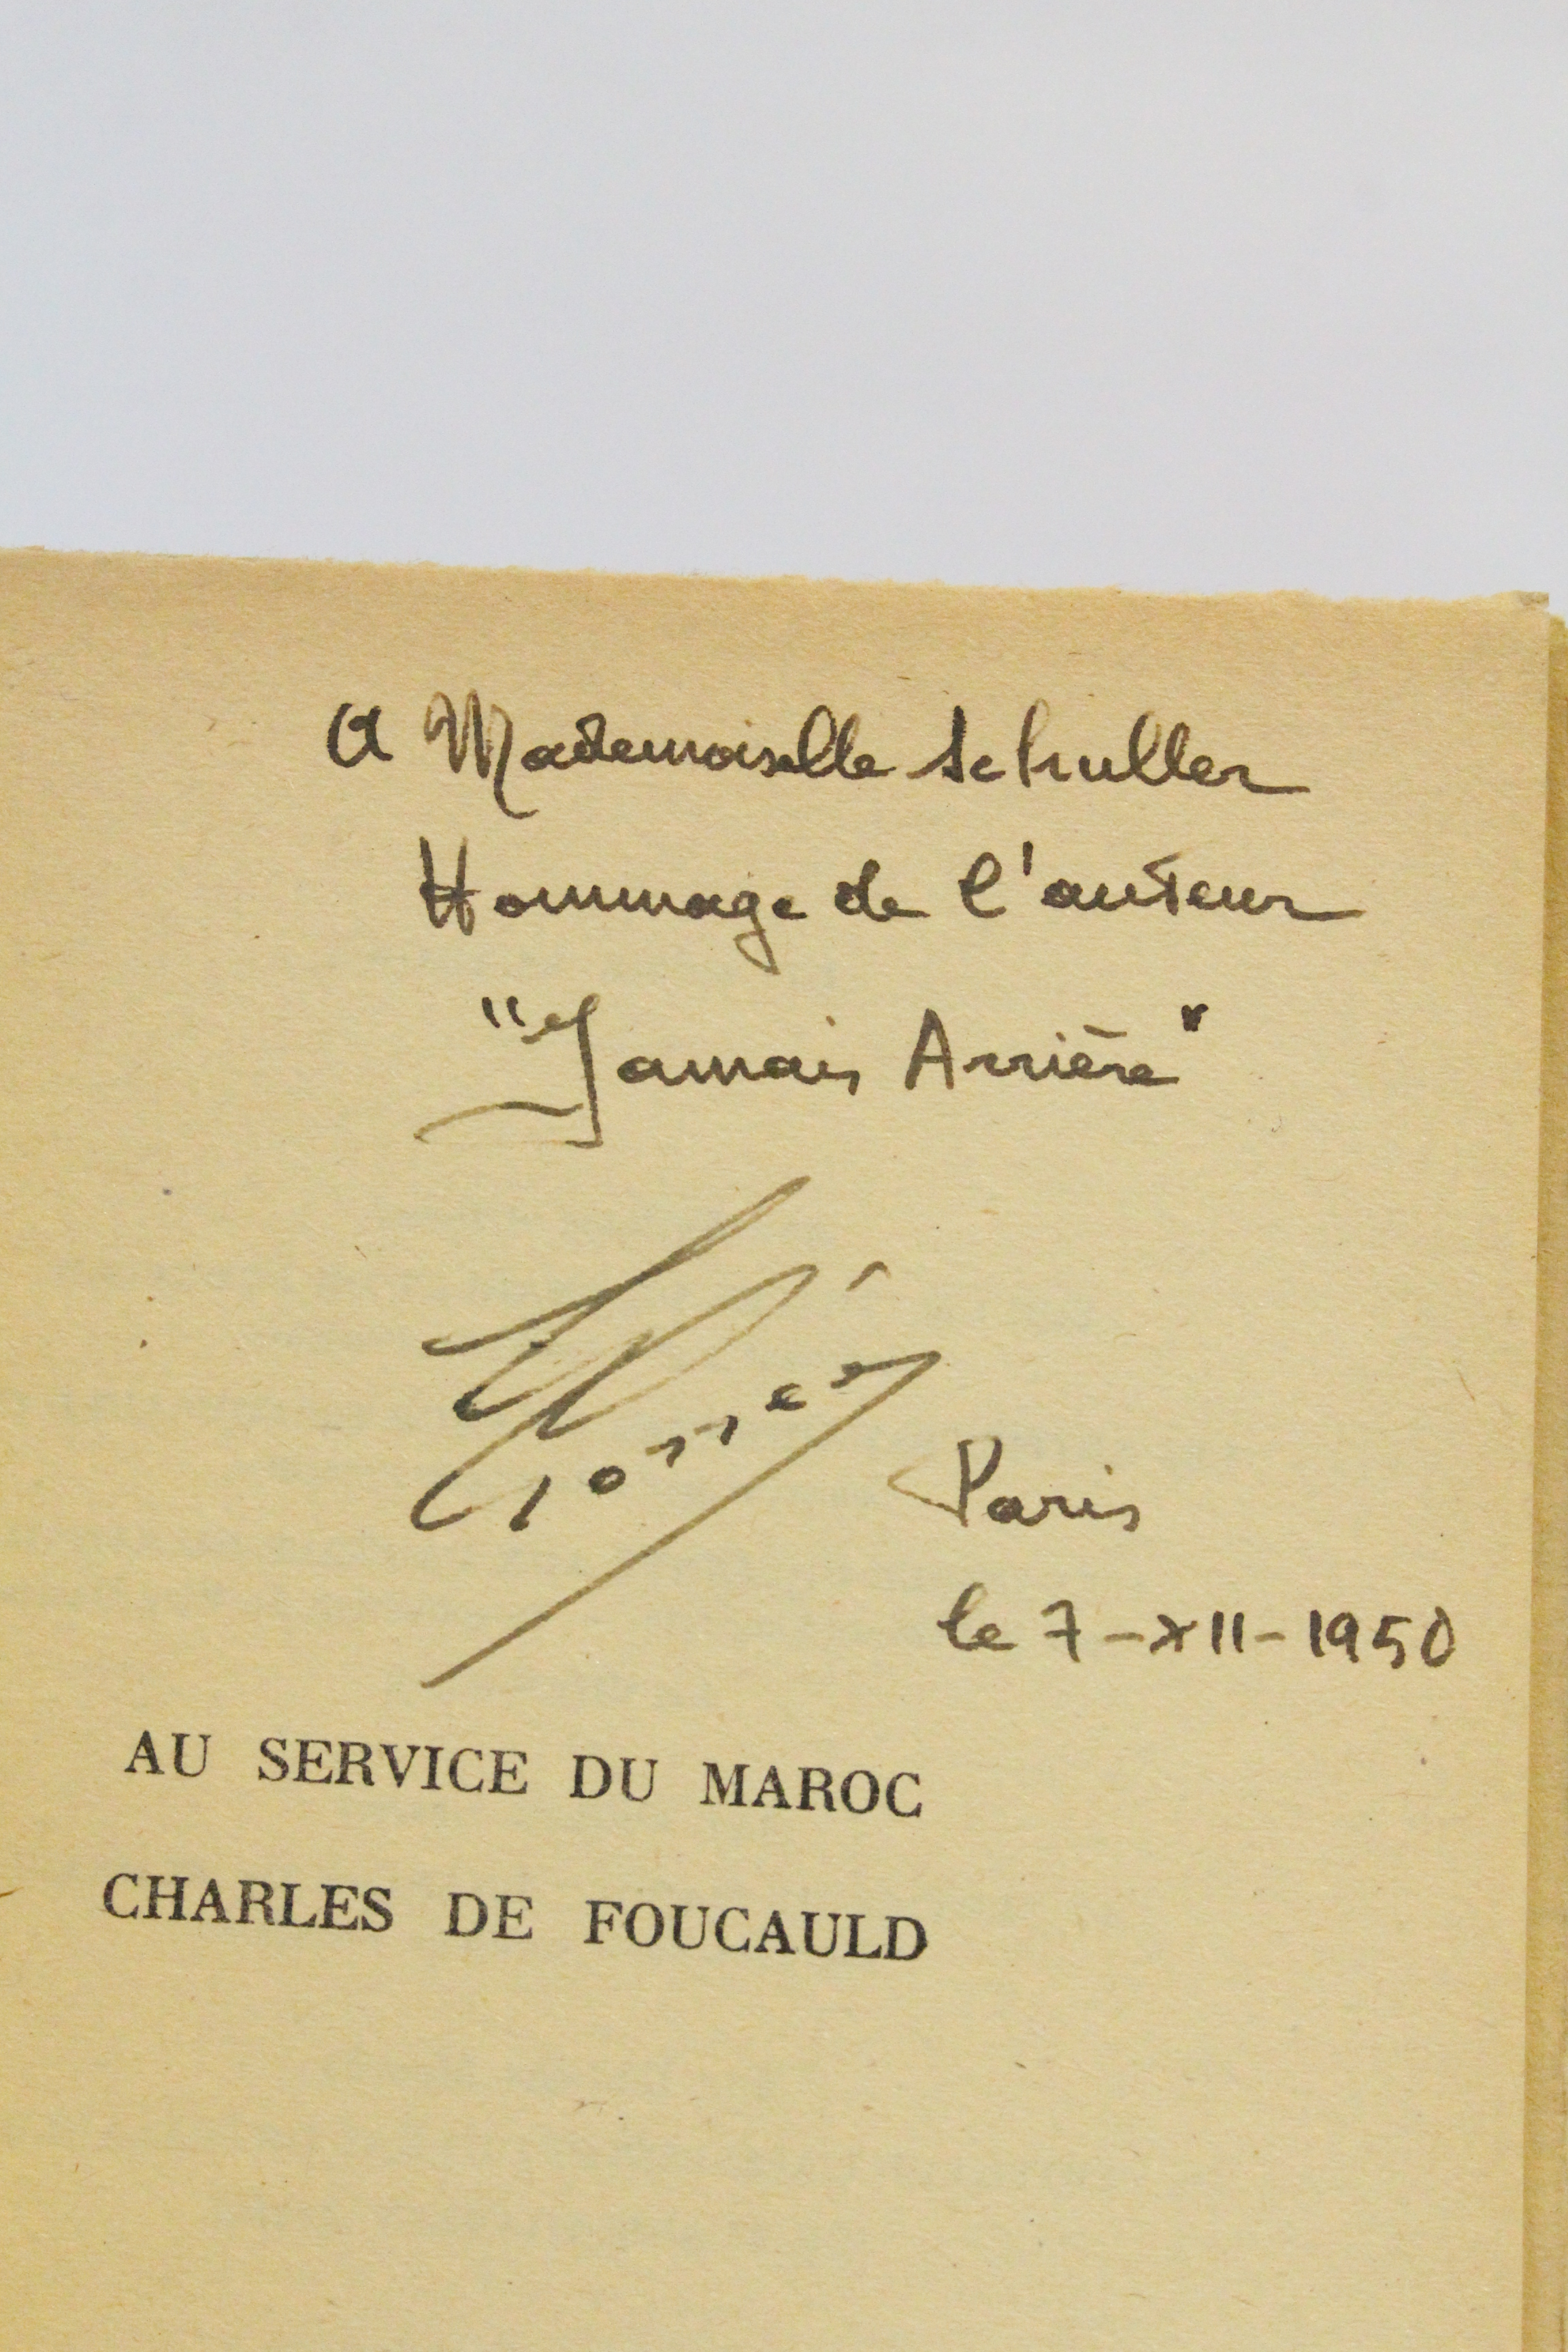 A Mademoiselle Schuller
Hommage de l'auteur
"Jamais Arrière"
Paris
le 7-XII-1950
AU SERVICE DU MAROC
CHARLES DE FOUCAULD